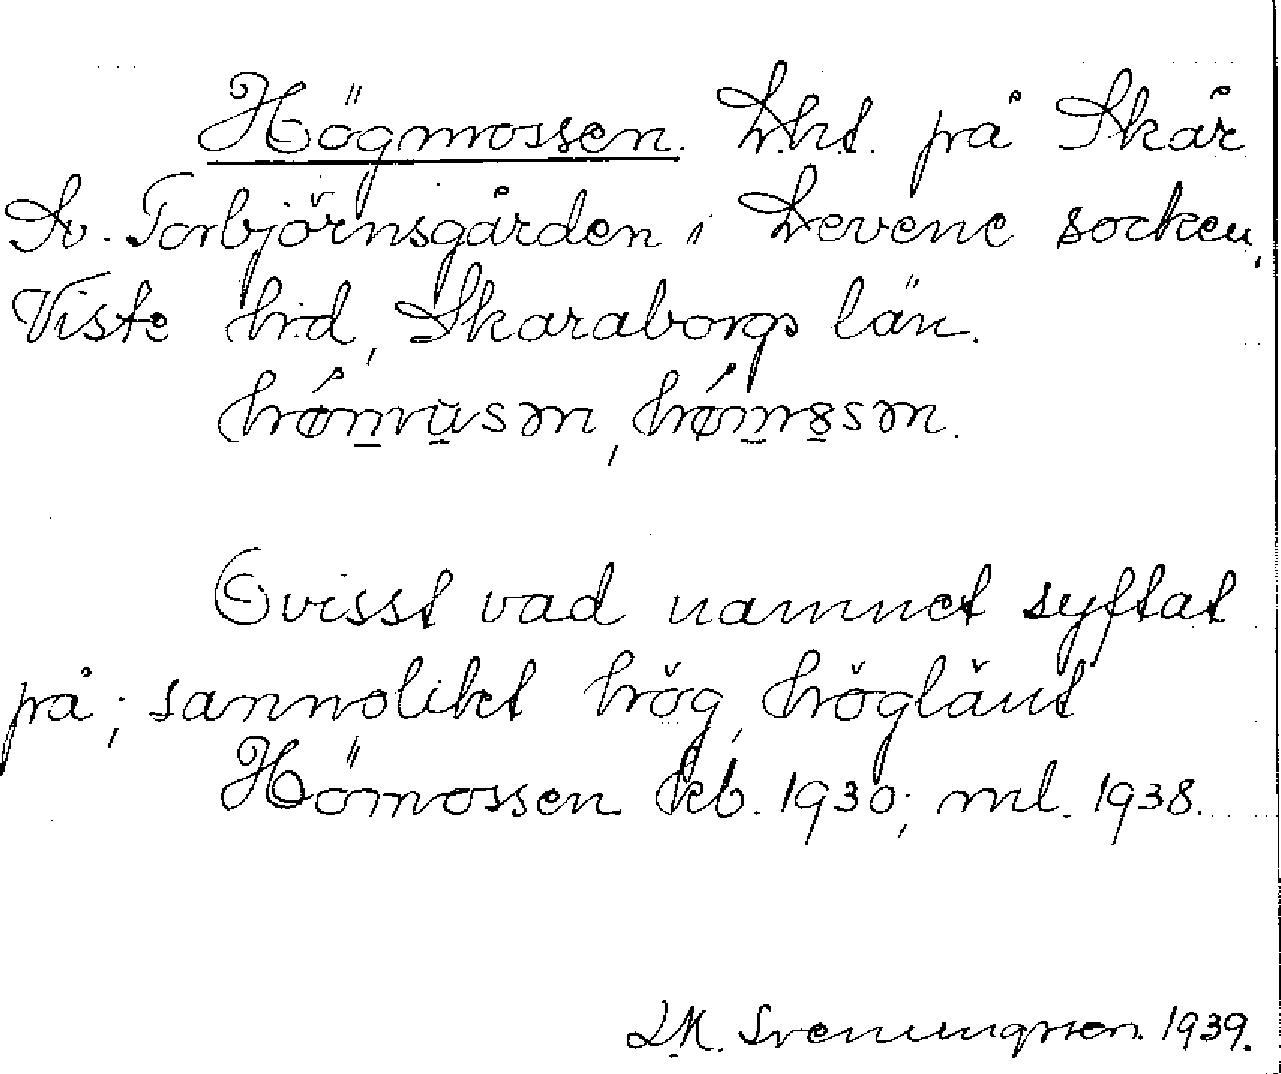 Högmossen. Lht. på Skår
St. Torbjörnsgården i Levene socken,
Viste hd, Skaraborgs län.

Ovisst vad namnet syftat
på; sannolikt hög, högländt
Hömossen kb. 1930; ml. 1938.
L.M. Svenungsson. 1939.